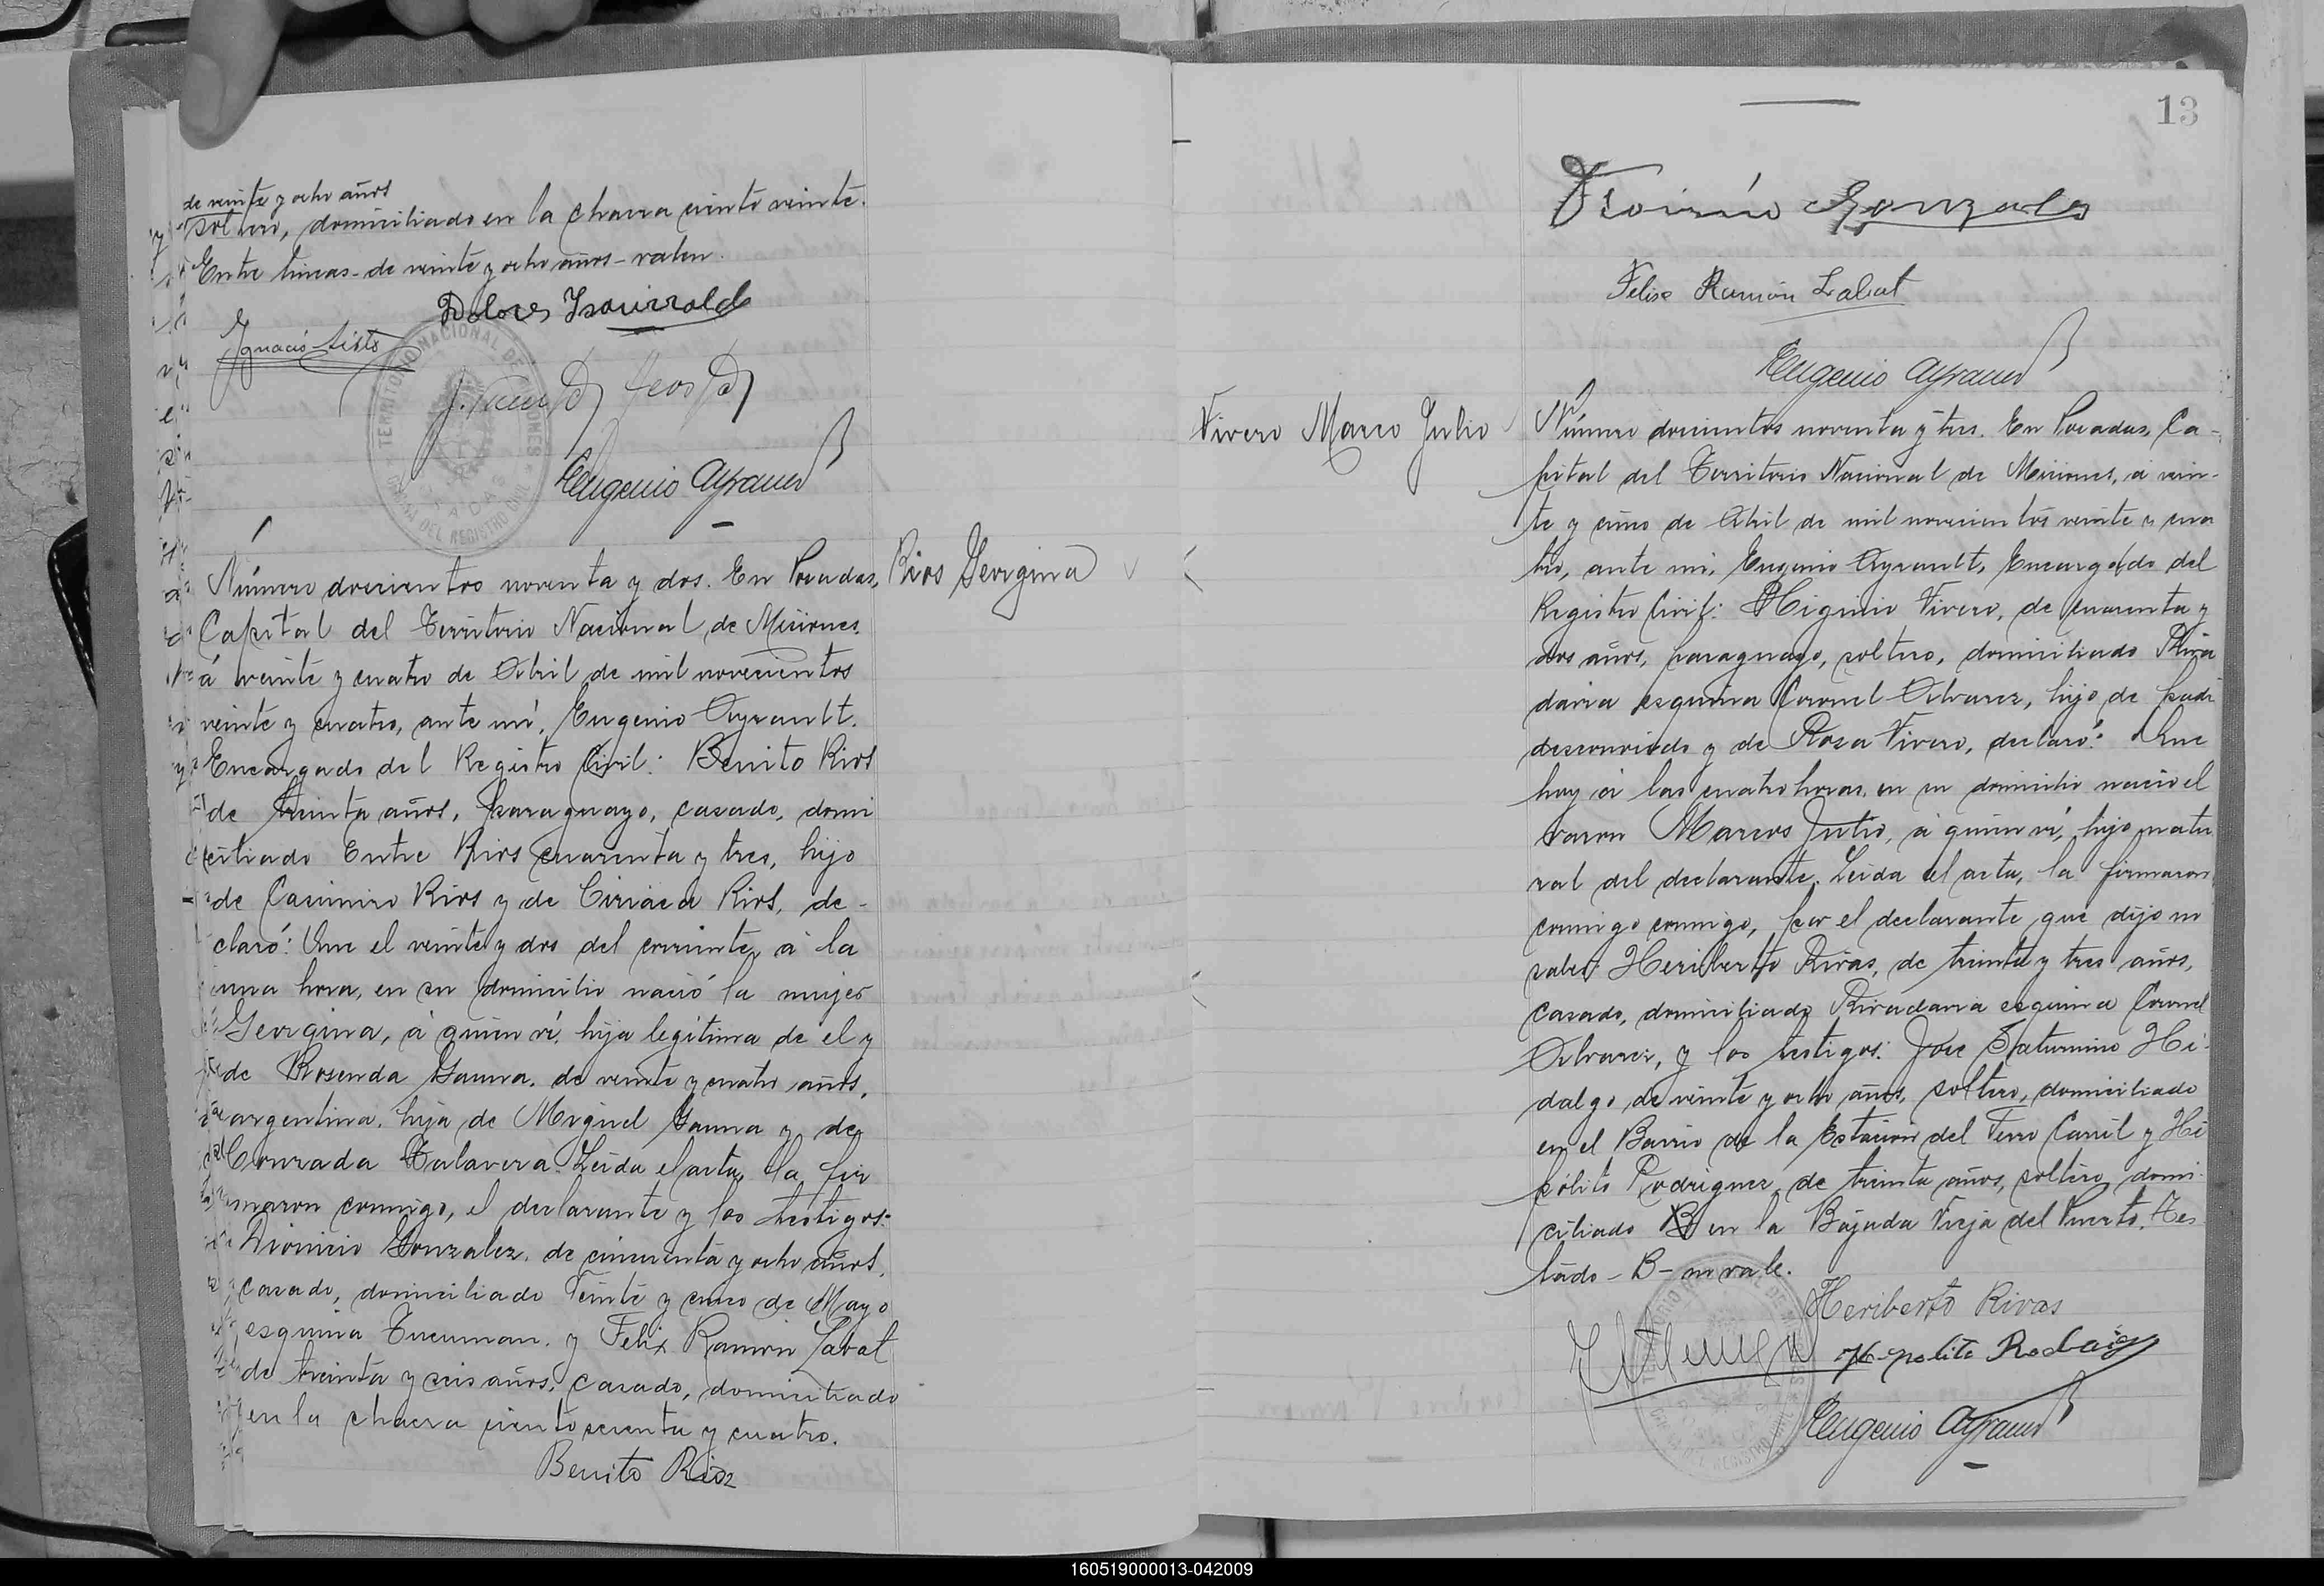 de veinte y ocho años
soltero, domiciliado en la chacra ciento veinte.
Entre lineas - de veinte y ocho años - valen.
Dolores Ysauirralde
Ignacio Sisto
TERRITORIO NACIONAL DE MISIONES
OFICINA DEL REGISTRO CIVIL
POSADAS
Eugenio Ayrault
Número doscientos noventa y dos. En Posadas,
Rios Georgina
Capital del Territorio Nacional de Misiones,
á veinte y cuatro de Abril de mil novecientos
veinte y cuatro, ante mi, Eugenio Ayrault,
Encargado del Registro Civil: Benito Rios
de treinta años, paraguayo, casado, domi
ciliado Entre Rios cuarenta y tres, hijo
de Casimiro Rios y de Ciriáca Rios, de-
claró: Que el veinte y dos del corriente, á la
una hora, en su domicilio nació la mujer
Georgina, á quien ví, hija legítima de el y
de Rosenda Gauna, de veinte y cuatro años,
argentina, hija de Miguel Gauna y de
Conrada Talavera. Leída el acta, la fir
maron conmigo, el declarante y los testigos:
Dionicio Gonzalez, de cincuenta y ocho años,
casado, domiciliado Veinte y cinco de Mayo
esquina Tucuman, y Felix Ramón Labat
de treinta y seis años, casado, domiciliado
en la chacra ciento sesenta y cuatro.
Benito Rios
13
Gonzales
Felix Ramón Labat
Eugenio Ayrault
Vivero Marco Julio
Número doscientos noventa y tres. En Posadas, Ca-
pital del Territorio Nacional de Misiones, á vein-
te y cinco de Abril de mil novecientos veinte y cua
tro, ante mi, Eugenio Ayrault, Encargado del
Registro Civil: Higinio Vivero, de cuarenta y
dos años, paraguayo, soltero, domiciliado Riva
davia esquina Coronel Alvarez, hijo de padre
desconocido y de Rosa Vivero, declaró: Que
hoy á las cuatro horas, en su domicilio nació el
varon Marcos Julio, á quien ví, hijo natu
ral del declarante. Leída el acta, la firmaron
conmigo conmigo, por el declarante que dijo no
saber Heriberto Rivas, de treinta y tres años,
casado, domiciliado Rivadavia esquina Coronel
Alvarez, y los testigos: José Saturnino Hi-
dalgo de veinte y ocho años, soltero, domiciliado
en el Barrio de la Estación del Ferro Carril y Hi
pólito Rodriguez, de treinta años, soltero, domi-
ciliado B en la Bajada Vieja del Puerto. Tes
tado - B - no vale.
Heriberto Rivas
Eugenio Ayrault
160519000013-042009